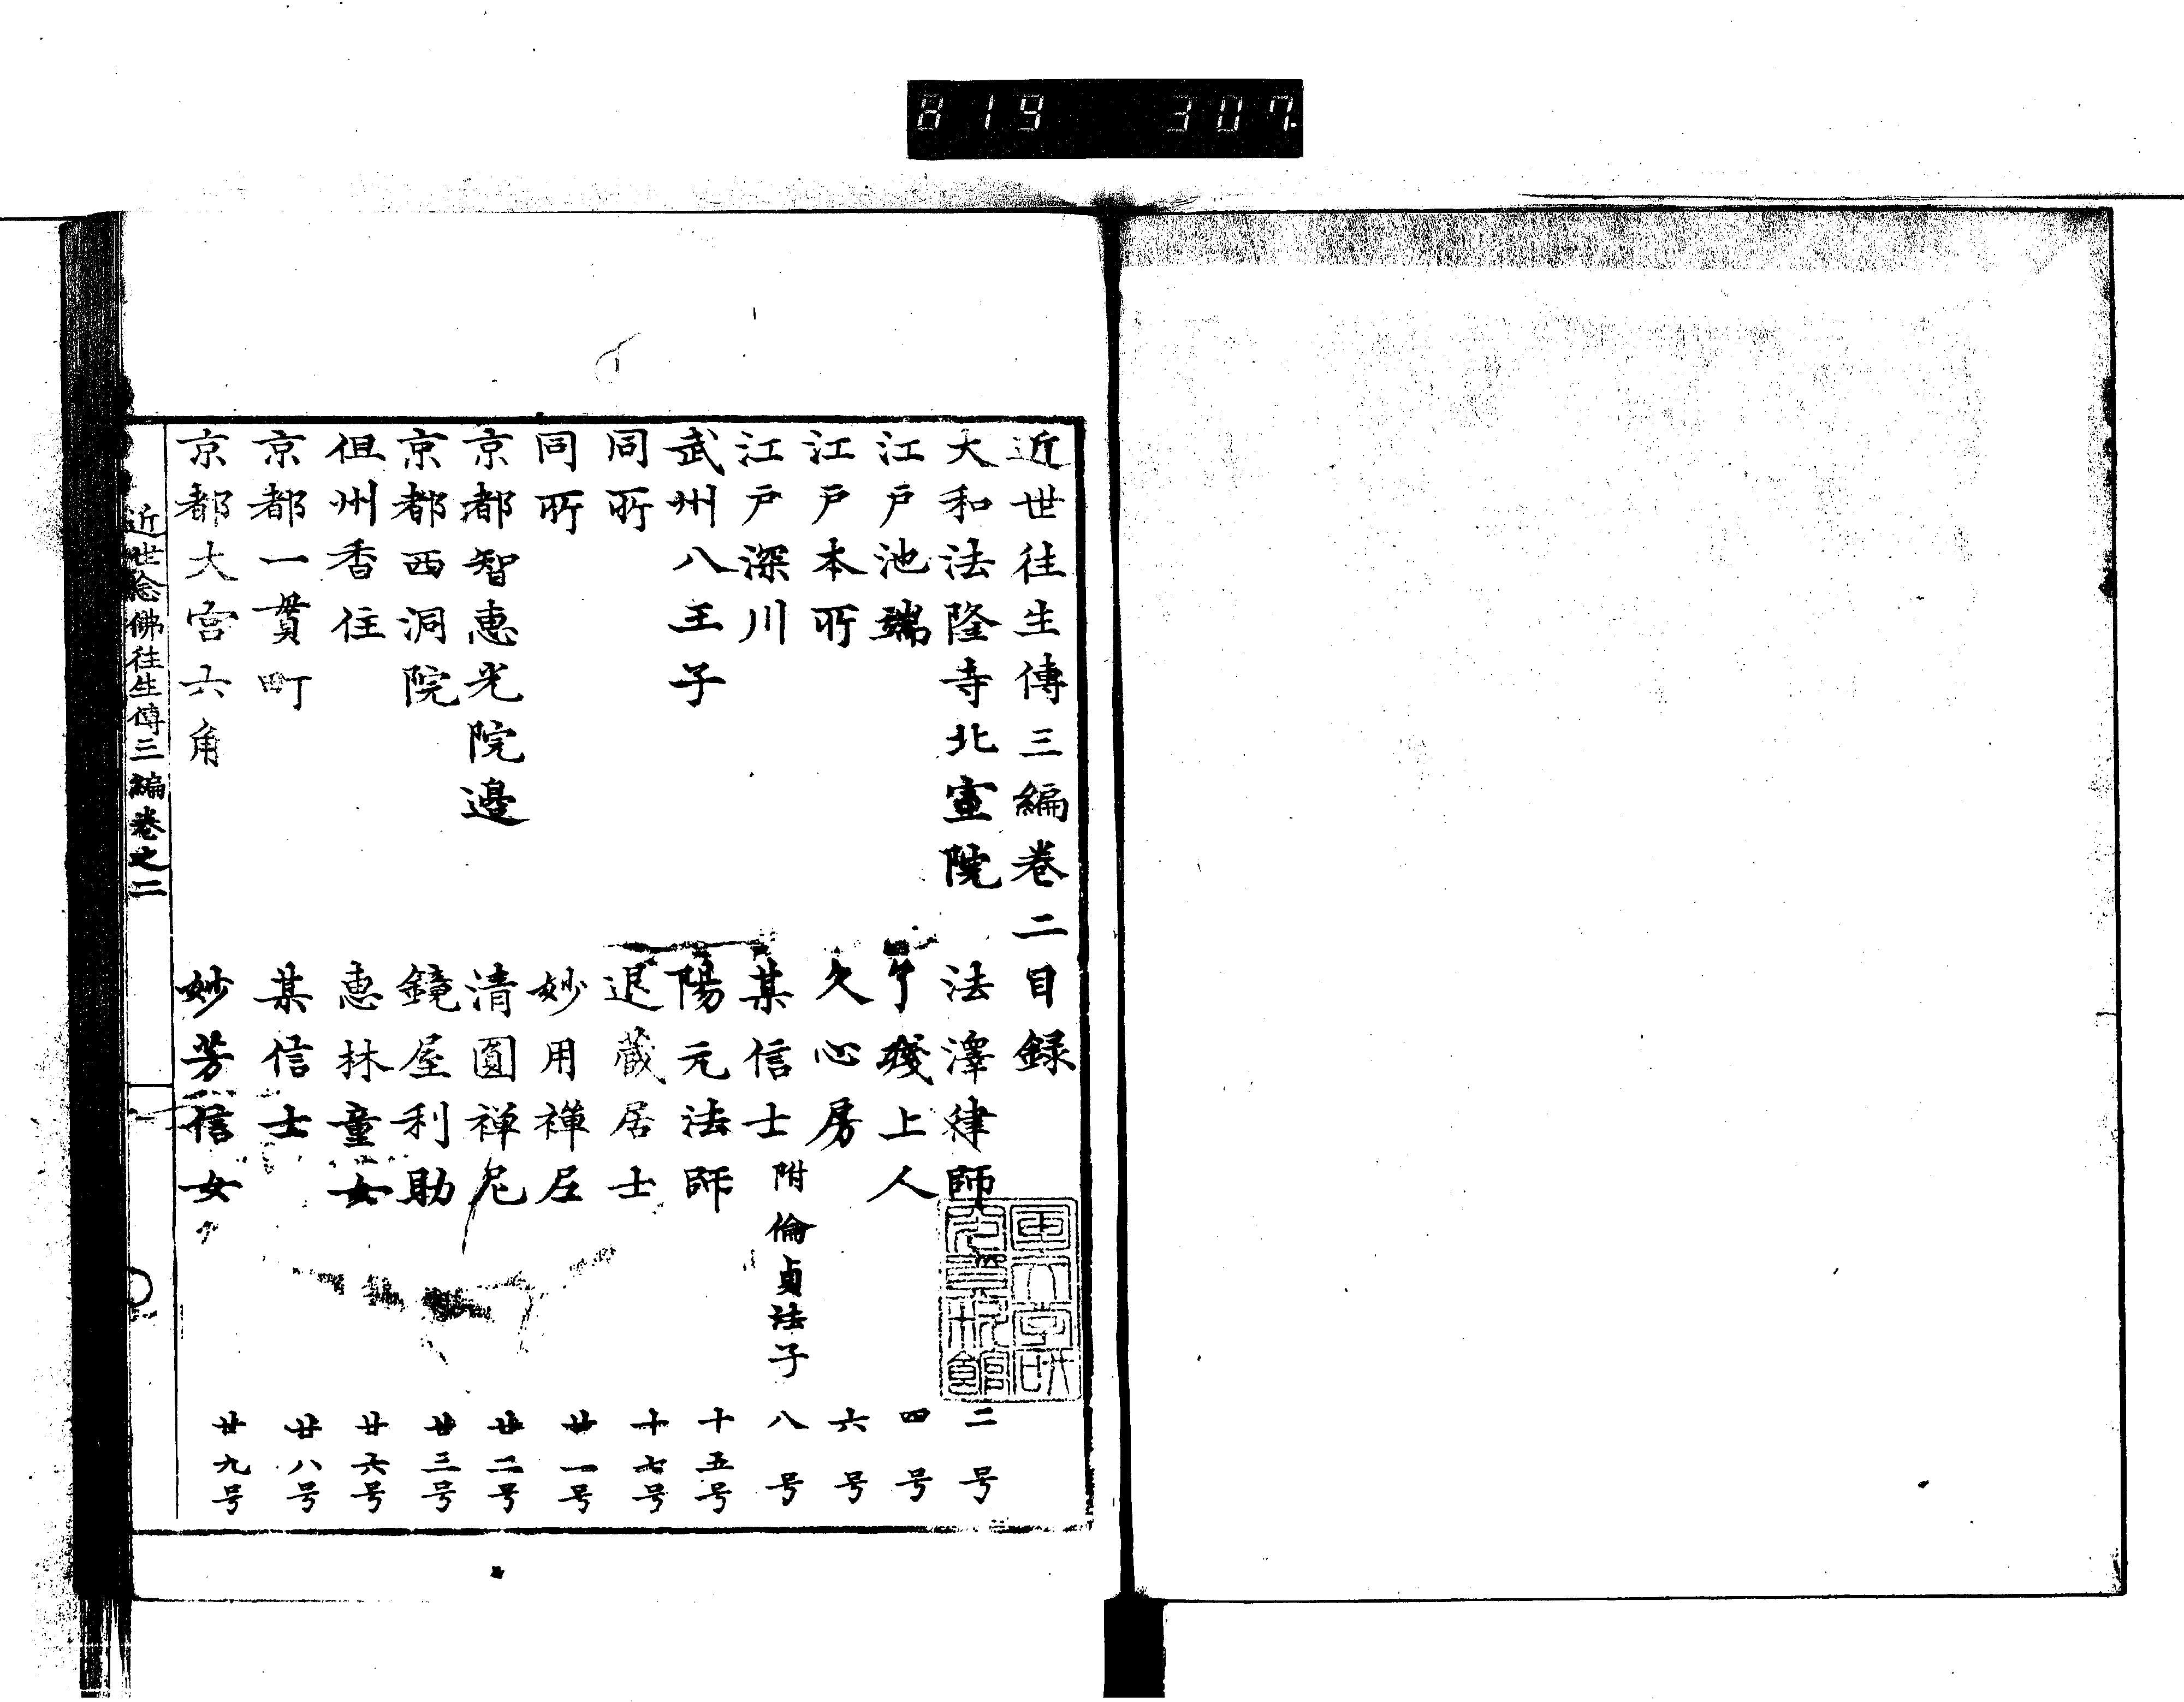 819 307
近世往生傳三編巻二目録
大和法隆寺北室院 法澤律師 二号
江戸池端 了殘上人 四号
江戸本所 久心房 六号
江戸深川 某信士 附倫貞法子 八号
武州八王子 陽元法師 十五号
同所 退藏居士 十七号
同所 妙用禅尼 廿一号
京都智恵光院邉 清圓禅尼 廿二号
京都西洞院 鏡屋利助 廿三号
但州香住 恵林童女 廿六号
京都一貫町 某信士 廿八号
京都大宮六角 妙芳信女 廿九号
近世念佛往生傳三編巻之二